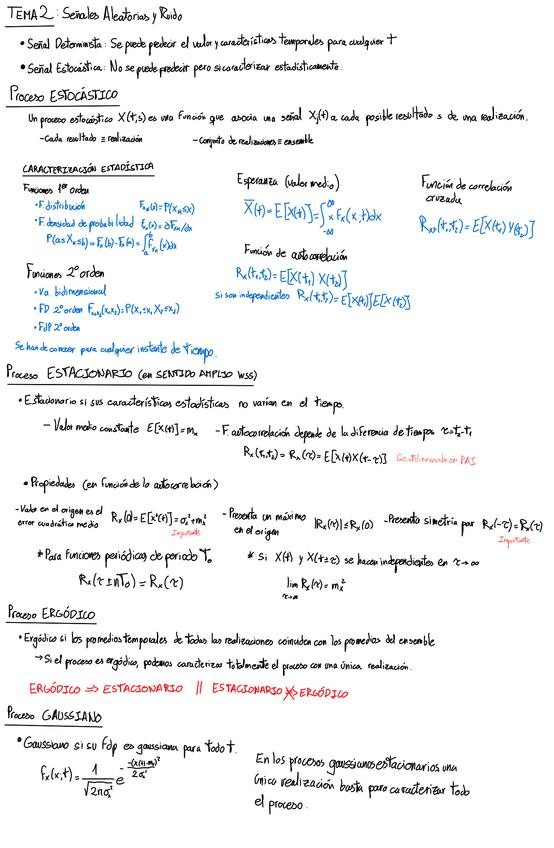 TEMA 2: Señales Aleatorias y Ruido
• Señal Determinista: Se puede predecir el valor y características temporales para cualquier t
• Señal Estocástica: No se puede predecir pero si caracterizar estadísticamente.
Proceso ESTOCÁSTICO
Un proceso estocástico X(t,s) es una función que asocia una señal Xⱼ(t) a cada posible resultado s de una realización.
-Cada resultado ≡ realización
-Conjunto de realizaciones ≡ ensemble
CARACTERIZACIÓN ESTADÍSTICA
Funciones 1er orden
• F. distribución Fₓₖ(x)=P(Xₖ≤x)
• F. densidad de probabilidad fₓₖ(x)=∂Fₓₖ/∂x
P(a≤Xₖ≤b)=Fₓ(b)-Fₓ(a)=∫ₐᵇ fₓₖ(x)dx
Funciones 2º orden
• Va. bidimensional
• FD 2º orden Fₓ₁ₓ₂(x₁,x₂)=P(X₁≤x₁, X₂≤x₂)
• FdP 2º orden
Se han de conocer para cualquier instante de tiempo.
Esperanza (valor medio)
X̄(t)=E[X(t)]=∫₋∞^∞ x fₓ(x,t)dx
Función de autocorrelación
Rₓ(t₁,t₂)=E[X(t₁) X(t₂)]
Si son independientes Rₓ(t₁,t₂)=E[X(t₁)]E[X(t₂)]
Función de correlación
cruzada
Rₓᵧ(t₁,t₂)=E[X(t₁)Y(t₂)]
Proceso ESTACIONARIO (en SENTIDO AMPLIO WSS)
• Estacionario si sus características estadísticas no varían en el tiempo.
- Valor medio constante E[X(t)]=mₓ
-F. autocorrelación depende de la diferencia de tiempos τ=t₂-t₁
Rₓ(t₁,t₂)=Rₓ(τ)=E[X(t)X(t-τ)]
• Propiedades (en función de la autocorrelación)
-Valor en el origen es el
error cuadrático medio
Rₓ(0)=E[x²(t)]=σₓ²+mₓ²
Importante
-Presenta un máximo
en el origen
|Rₓ(τ)|≤Rₓ(0)
-Presenta simetría par Rₓ(-τ)=Rₓ(τ)
Importante
* Para funciones periódicas de periodo T₀
Rₓ(τ±nT₀)=Rₓ(τ)
* Si X(t) y X(t±τ) se hacen independientes en τ→∞
lim Rₓ(τ)=mₓ²
τ→∞
Proceso ERGÓDICO
• Ergódico si los promedios temporales de todas las realizaciones coinciden con los promedios del ensemble
→ Si el proceso es ergódico, podemos caracterizar totalmente el proceso con una única realización.
ERGÓDICO => ESTACIONARIO || ESTACIONARIO ≠> ERGÓDICO
Proceso GAUSSIANO
• Gaussiano si su fdp es gaussiana para todo t.
fₓ(x,t)=1/√(2πσₓ²) e^(-(x(t)-mₓ)²/2σₓ²)
En los procesos gaussianos estacionarios, una
única realización basta para caracterizar todo
el proceso.